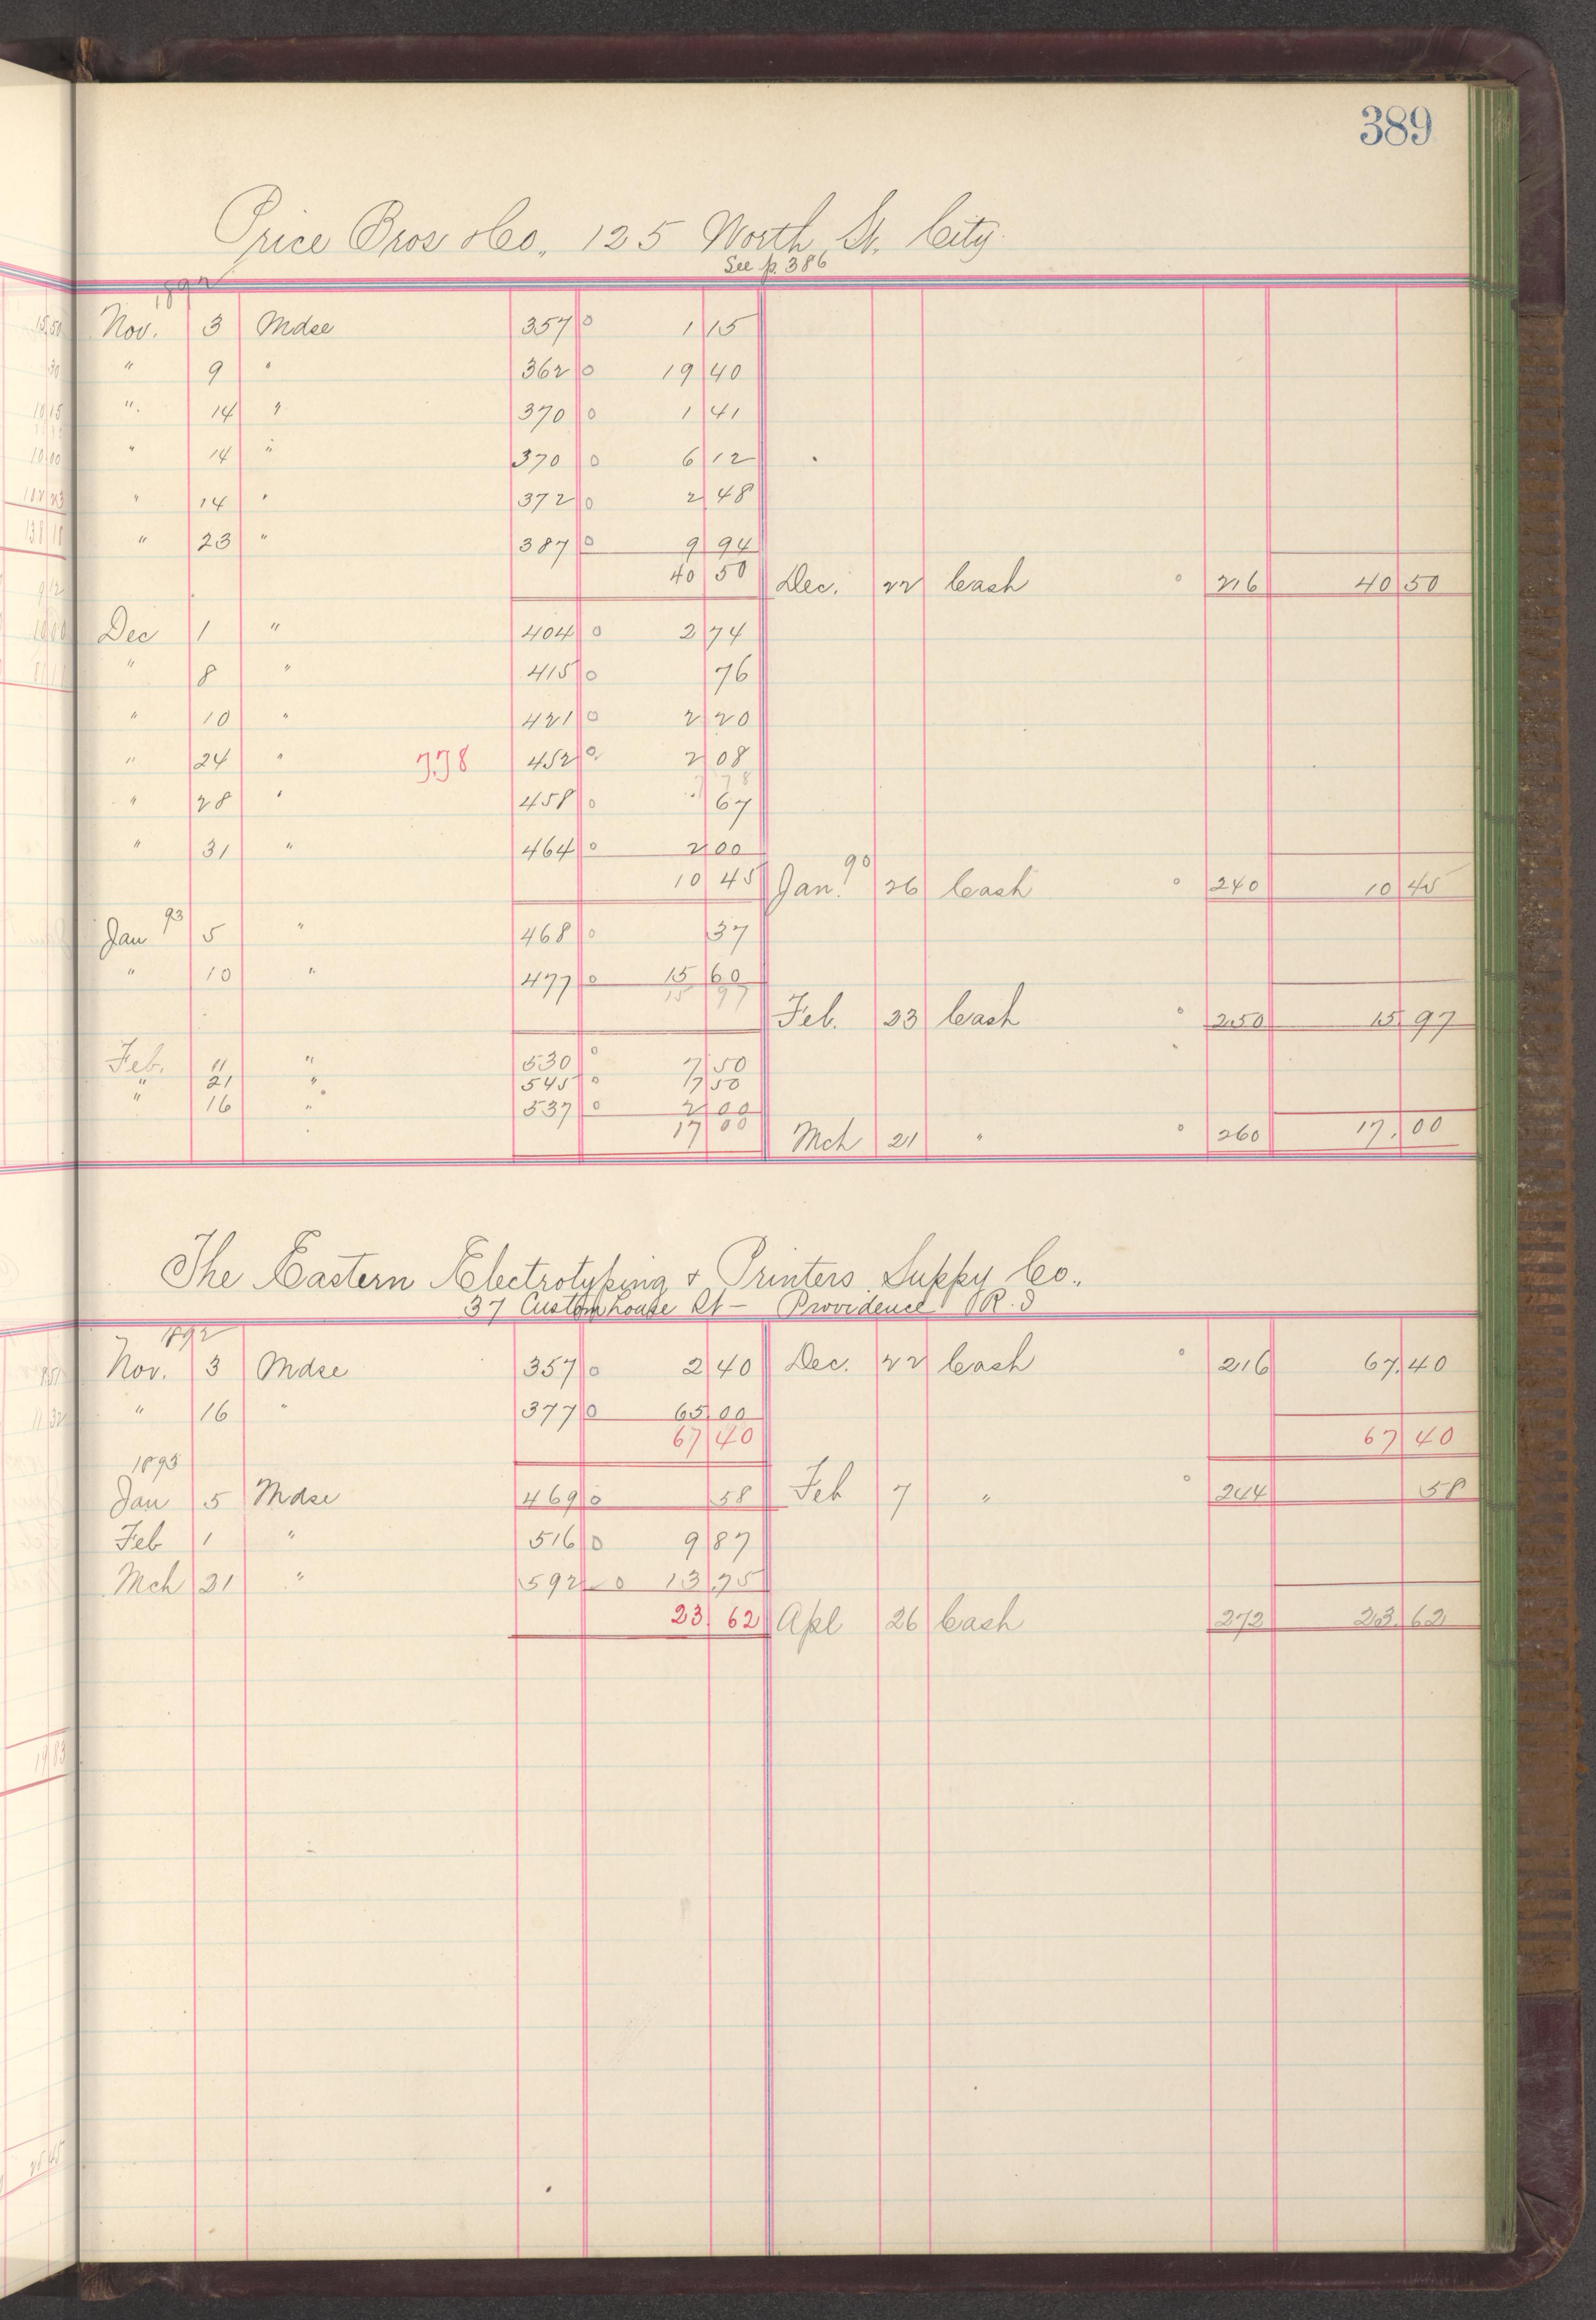 389
Price Bros & Co., 125 Worth St. City.
See p. 386
1892
Nov. 3 Mdse 357 0 1 15
" 9 " 362 0 19 40
" 14 " 370 0 1 41
" 14 " 370 0 6 12
" 14 " 372 0 2 48
" 23 " 387 0 9 94
40 50 Dec. 22 Cash 0 216 40 50
Dec 1 " 404 0 2 74
" 8 " 415 0 76
" 10 " 421 0 2 20
" 24 " 452 0 2 08
7 78
" 28 " 458 0 67
" 31 " 464 0 2 00
10 45 Jan. 26 Cash 0 240 10 45
Jan 93 5 " 468 0 37
" 10 " 477 0 15 60
15 97
Feb. 23 Cash 0 250 15 97
Feb. 11 " 530 0 7 50
" 21 " 545 0 7 50
" 16 " 537 0 2 00
17 00 Mch 21 " 0 260 17.00
The Eastern Electrotyping & Printers Suppy Co.,
37 Customhouse St - Providence R.I
1892
Nov. 3 Mdse 357 0 2 40 Dec. 22 Cash 0 216 67.40
" 16 " 377 0 65 00
67 40 67 40
1893
Jan 5 Mdse 469 0 58 Feb 7 " 0 244 58
Feb 1 " 516 0 9 87
Mch 21 " 592 0 13.75
23. 62 Apl 26 Cash 272 23.62